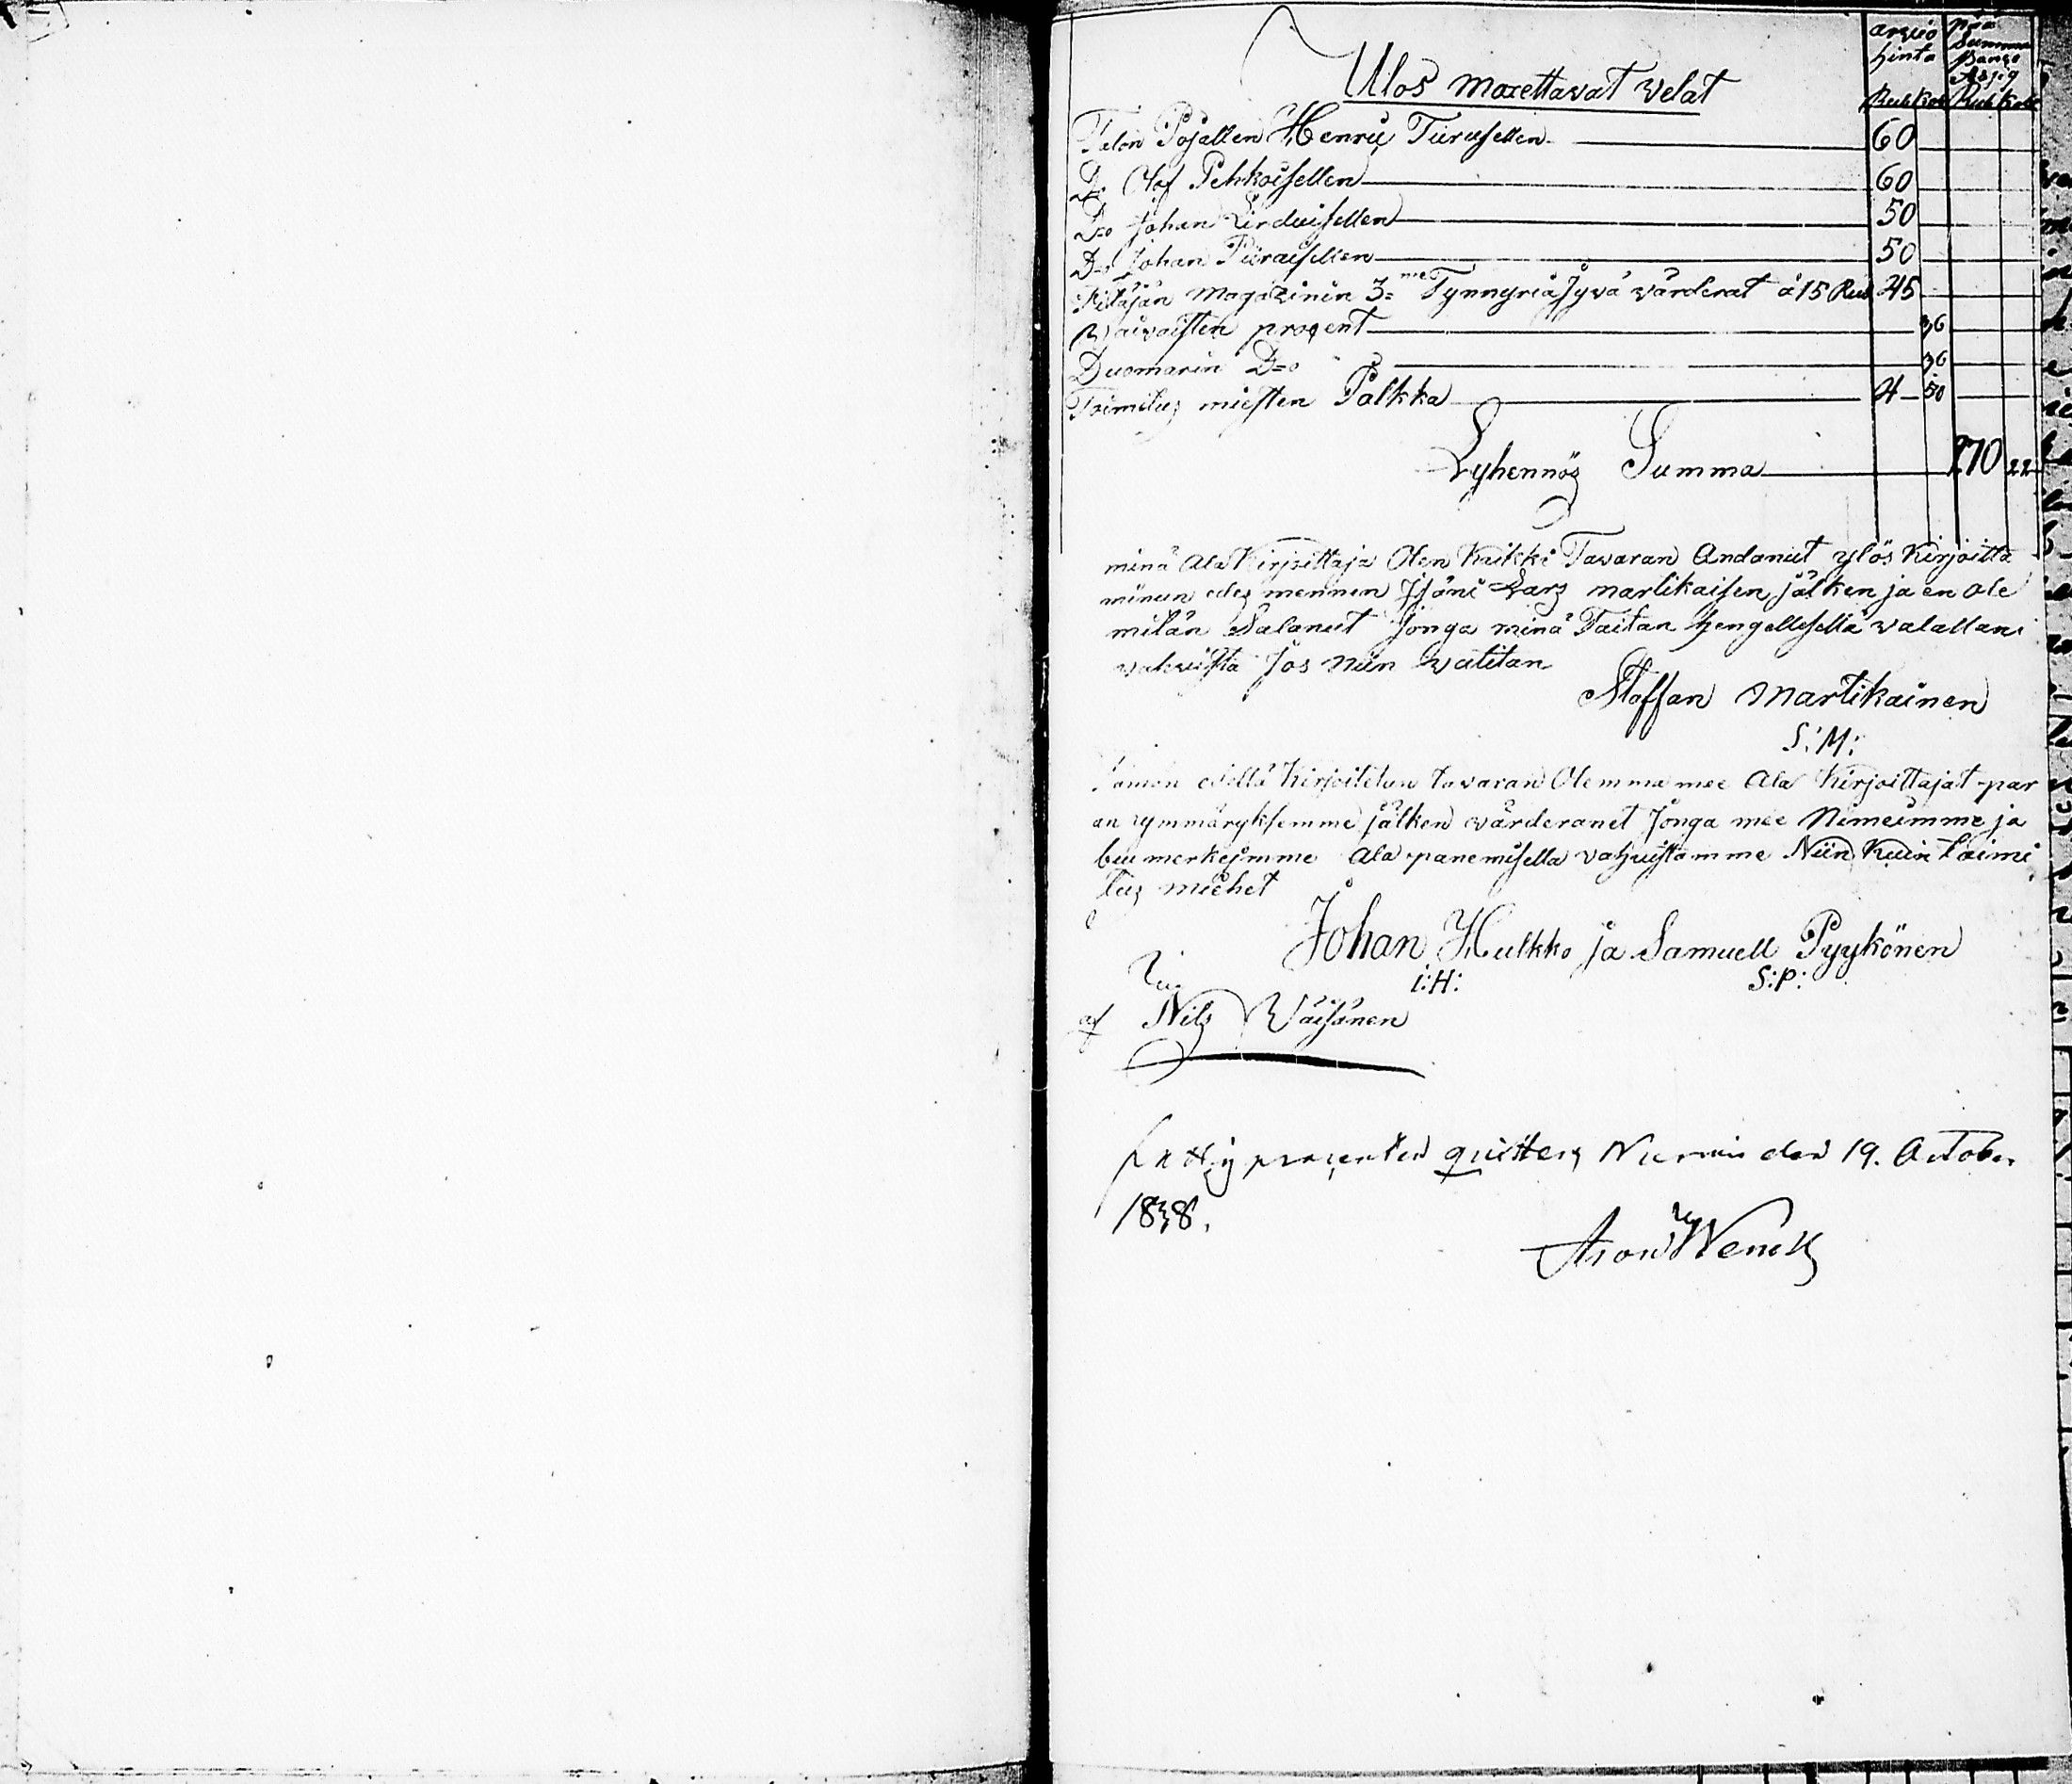 arvio pää
hinta Summa
Banco
Assig
Rub kop Rub kop
Ulos maxettavat velat
Talon Pojallen Henric Turusellen 60
D:o Olof Pehkoisellen 60
D:o Johan 50
D:o Johan Piiraisellen 50
Pitäjän Magazinin 3:me Tynnyriä Jyvä värderat á 15 Rub 45
Waivaisten procent 36
Duomarin D:o 36
Toimitus miesten Palkka 4 50
Lyhennös Summa 270 22
minä ala Kirjoittaja Olen Kaikki Tavaran Andanut ylös Kirjoitta
minun edes mennen Isäni Lars martikaisen jälken ja en ole
mitän Salanut Jonga minä Taitan hengellisellä valallani
vahvista Jos niin vatitan
Staffan Martikainen
S:M:
Tämän edellä Kirjoitetun tavaran Olemma mee Ala Kirjoittajat par
an ymmäryksemme jälken värderanet Jonga mee Nimeimme ja
bumerkeimme ala panemisella vahvistamme Niin Kuin toimi
tus miehet
Johan Hulkko ja Samuell Pyykönen
i:H: S:P:
af Nils Wäisänen
procenten quitteras Nurmis den 19. October
1838.
Aron Wenell